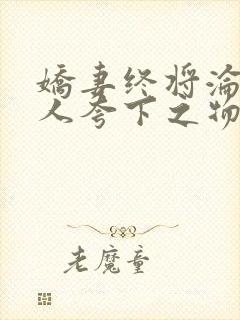 娇妻终将沦
人夸下之物
老魔童